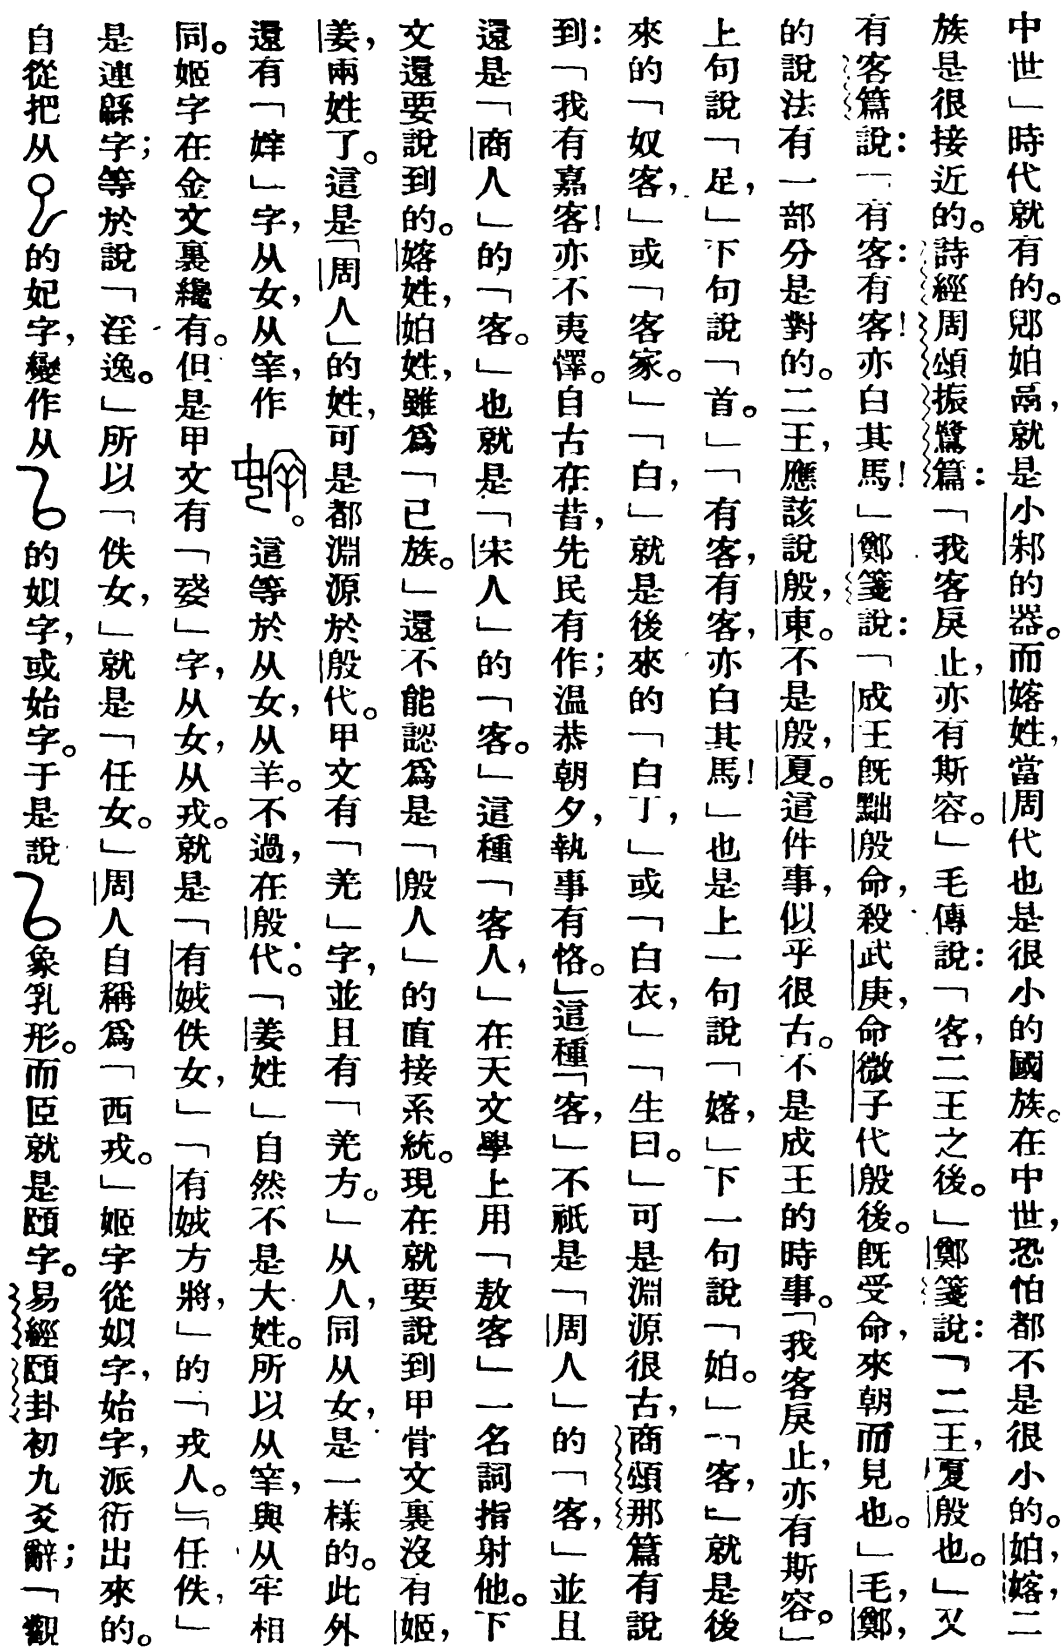 中世」時代就有的。郳始鬲,就是小邾的器。而嫆姓,當周代也是很小的國族。在中世,恐怕都不是很小的。始,嫆,二
族是很接近的。詩經周頌振鷺篇:「我客戾止,亦有斯容。」毛傳說:「客,二王之後。」鄭箋說:「二王,夏殷也。」又
有客篇說:「有客:有客!亦白其馬!」鄭箋說:「成王既黜殷命,殺武庚,命微子代殷後。既受命,來朝而見也。」毛,鄭,
的說法有一部分是對的。二王,應該說殷,東。不是殷,夏。這件事,似乎很古。不是成王的時事。「我客戾止,亦有斯容。」
上句說「足,」下句說「首。」「有客,有客,亦白其馬!」也是上一句說「嫆,」下一句說「始。」「客,」就是後
來的「奴客,」或「客家。」「白,」就是後來的「白丁,」或「白衣,」「生曰。」可是淵源很古,商頌那篇有說
到:「我有嘉客!亦不夷懌。自古在昔,先民有作;溫恭朝夕,執事有恪。」這種「客,」不祇是「周人」的「客,」並且
還是「商人」的「客。」也就是「宋人」的「客。」這種「客人,」在天文學上用「敖客」一名詞指射他。下
文還要說到的。嫆姓,始姓,雖爲「已族。」還不能認爲是「殷人」的直接系統。現在就要說到甲骨文裏沒有姬,
姜,兩姓了。這是「周人」的姓,可是都淵源於殷代。甲文有「羌」字,並且有「羌方。」从人,同从女,是一樣的。此外
還有「㛙」字,从女,从宰,作。這等於从女,从羊。不過,在殷代。「姜姓」自然不是大姓。所以从宰,與从牢相
同。姬字在金文裏纔有。但是甲文有「娀」字,从女,从戎。就是「有娀佚女,」「有娀方將,」的「戎人。」「任佚,」
是連緜字;等於說「淫逸。」所以「佚女,」就是「任女。」周人自稱爲「西戎。」姬字從姒字,始字,派衍出來的。
自從把从的妃字,變作从的姒字,或始字。于是說象乳形。而𦣞就是頤字。易經頤卦初九爻辭;「觀